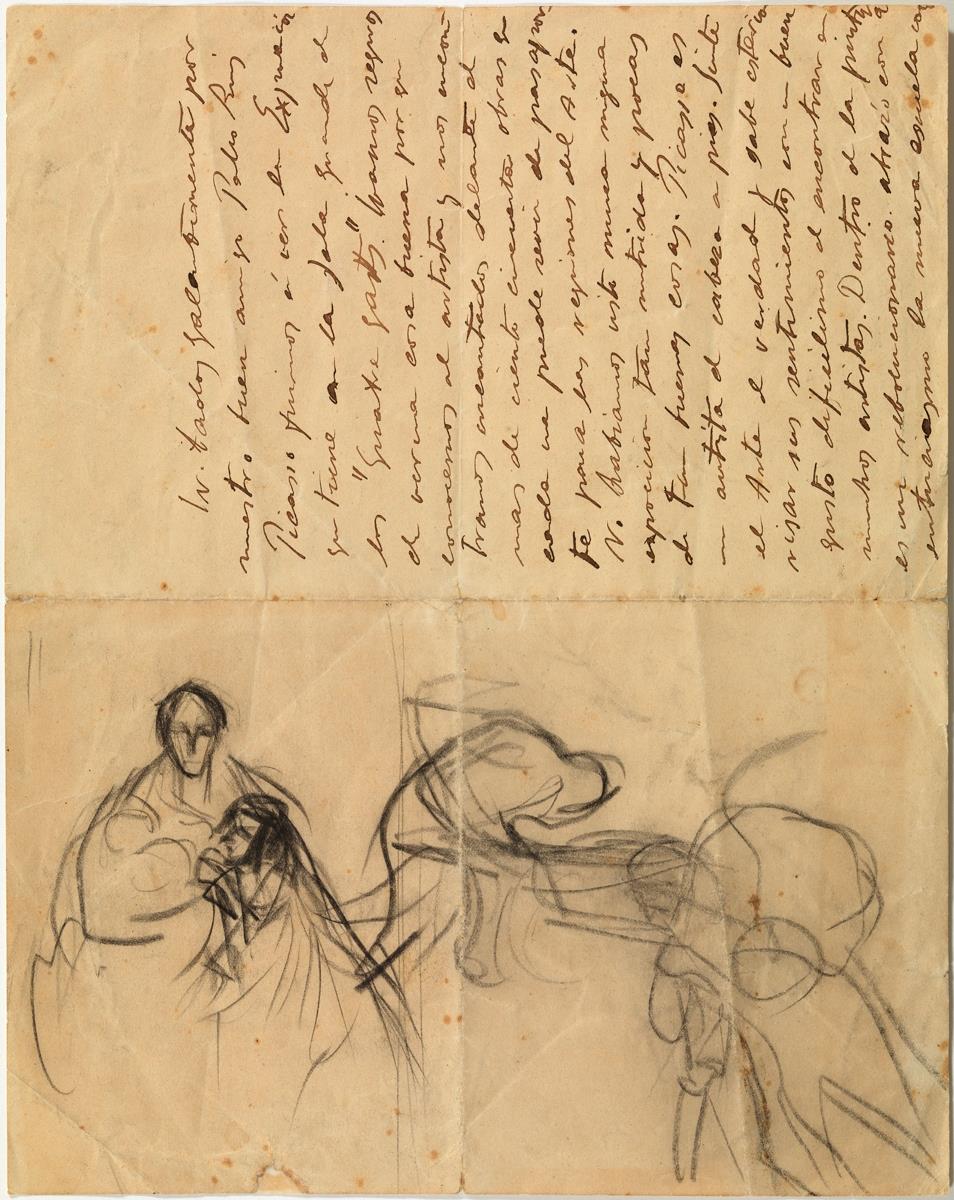 Invitados galantemente por
nuestro buen amigo Pablo Ruiz
Picasso fuimos á ver la Exposición
que tiene en la Sala grande de
los "Quatre Gats." Vamos seguros
de ver una cosa buena por que
conocemos al artista y nos encon
tramos encantados delante de
mas de ciento cincuenta obras que
cada una puede servir de pasapor-
te para las regiones del Arte.
N. habiamos visto nunca ninguna
exposicion tan nutrida y pocas
de tan buenas cosas. Picasso es
un artista de cabeza a pies. Siente
el Arte de verdad y sabe exterio
risar sus sentimientos con un buen
gusto dificilisimo de encontrar en
muchos artistas. Dentro de la pintura
es un rebolucionario. abrazó con
entusiasmo la nueva escuela con